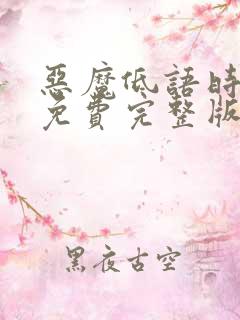 惡魔低語時
免費完整版
黑夜古空